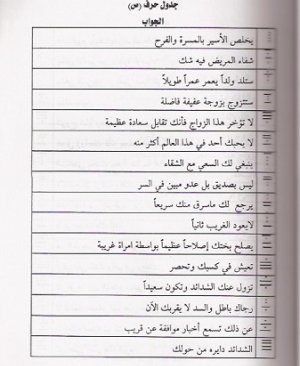 جدول حرف (ص)
الجواب
يخلص الأسير بالمسرة والفرح
شفاء المريض فيه شك
ستلد ولداً يعمر عمراً طويلاً
ستتزوج بزوجة عفيفة فاضلة
لا تؤخر هذا الزواج فأنك تقابل سعادة عظيمة
لا يحبك أحد في هذا العالم أكثر منه
ينبغي لك السعي مع الشقاء
ليس بصديق بل عدو مبين في السر
يرجع لك ماسرق منك سريعاً
لايعود الغريب ثانياً
يصلح بختك إصلاحاً عظيماً بواسطة امراة غريبة
تعيش في كسبك وتحصر
تزول عنك الشدائد وتكون سعيداً
رجاك باطل والسد لا يقربك الآن
عن ذلك تسمع أخبار موافقة عن قريب
الشدائد دايره من حولك